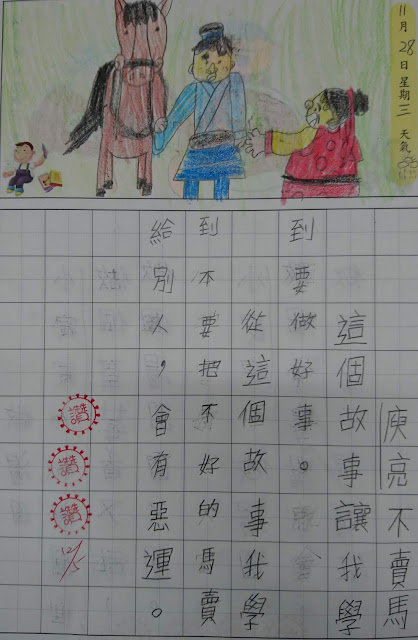 11月28日星期三 天氣
庾亮不賣馬
這個故事讓我學
到要做好事。
從這個故事我學
到本要把不好的馬賣
給別人，會有惡運。
讚
讚
讚
12/5